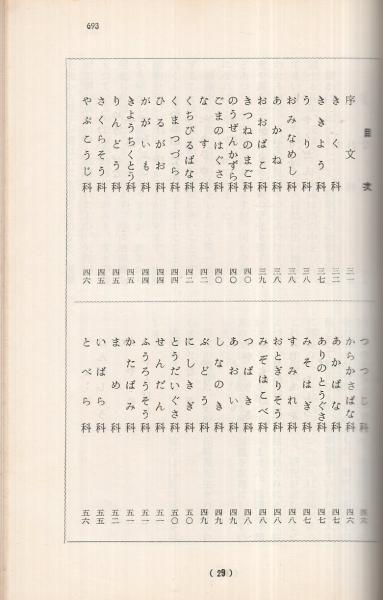 693
目次
序文 三一
きく科 三二
ききょう科 三七
うり科 三八
おみなめし科 三八
あかね科 三八
おおばこ科 三九
きつねのまご科 四〇
のうぜんかずら科 四〇
ごまのはぐさ科 四〇
なす科 四二
くちびるばな科 四二
くまつづら科 四四
ひるがお科 四四
ががいも科 四四
きようちくとう科 四五
りんどう科 四五
さくらそう科 四五
やぶこうじ科 四六
つつじ科 四六
からかさばな科 四六
あかばな科 四七
ありのとうぐさ科 四七
みそはぎ科 四七
すみれ科 四八
おとぎりそう科 四八
みぞはこべ科 四八
つばき科 四八
あおい科 四九
しなのき科 四九
ぶどう科 四九
にしきぎ科 五〇
とうだいぐさ科 五〇
せんだん科 五一
ふうろうそう科 五一
かたばみ科 五一
まめ科 五二
いばら科 五五
とべら科 五六
(29)